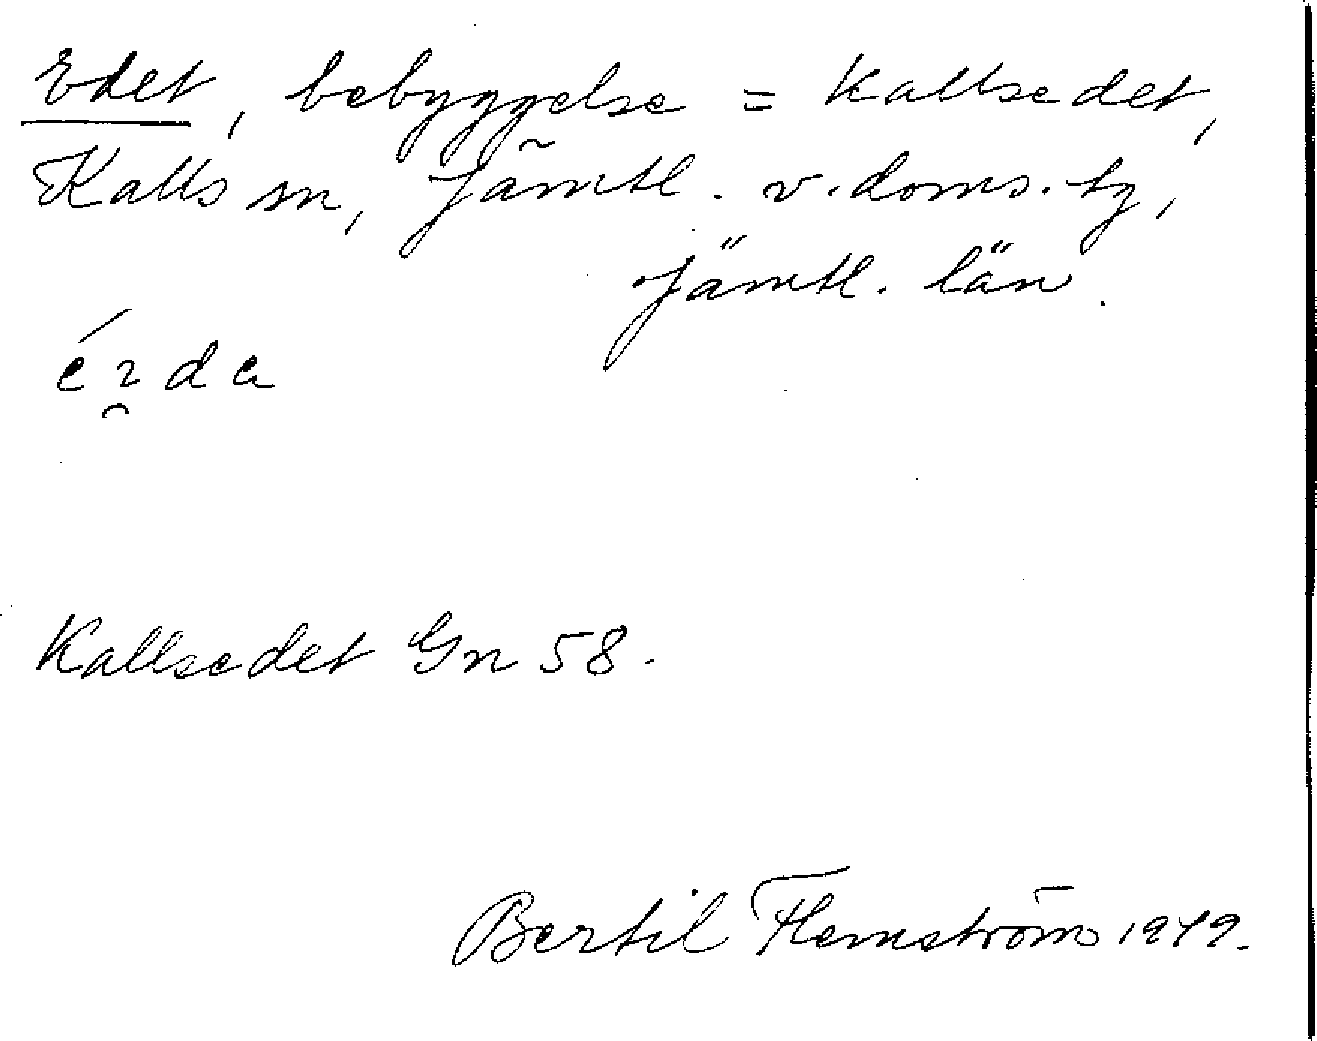 Edet, bebyggelse = Kallsedet,
Kalls sn, Jämtl. v. doms. tg,
Jämtl. län.
Kallsedet Gn 58.
Bertil Flemström 1979.